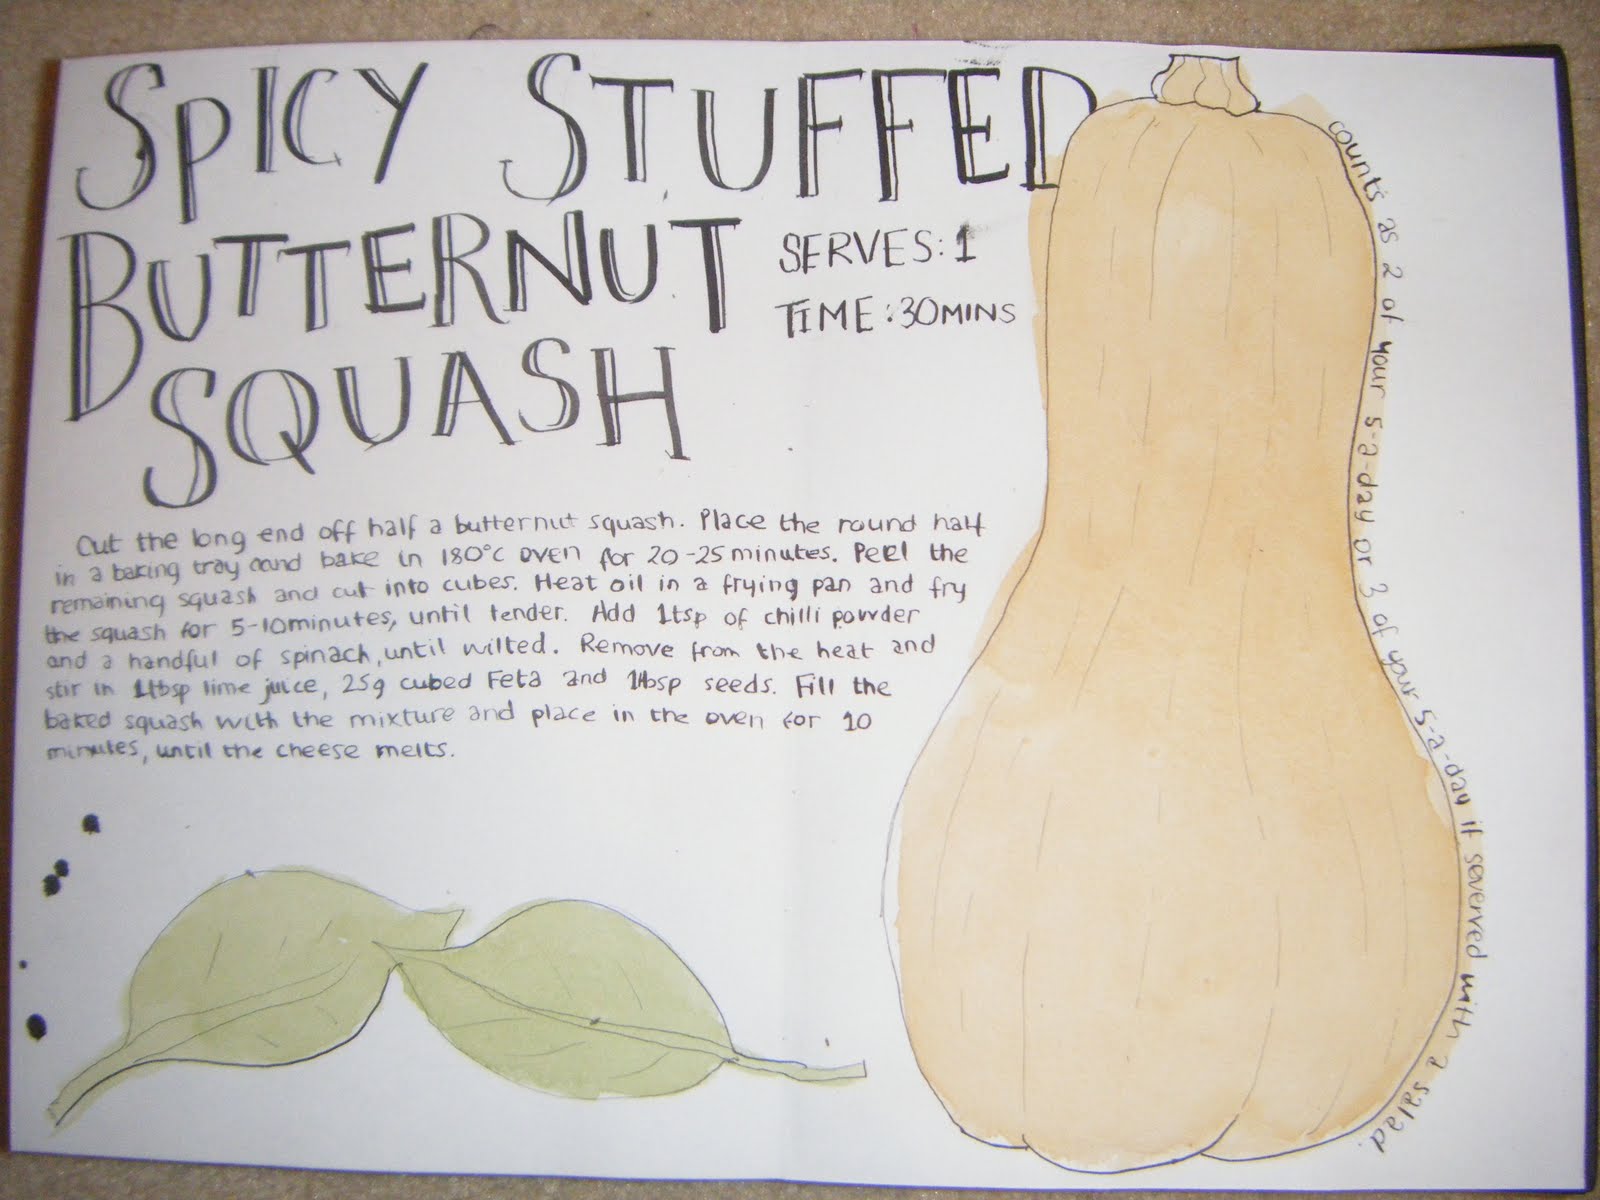 SPICY STUFFED
BUTTERNUT
SQUASH
SERVES: 1
TIME: 30MINS
Cut the long end off half a butternut squash. Place the round half
in a baking tray and bake in 180°c oven for 20-25 minutes. Peel the
remaining squash and cut into cubes. Heat oil in a frying pan and fry
the squash for 5-10minutes, until tender. Add 1tsp of chilli powder
and a handful of spinach, until wilted. Remove from the heat and
stir in 1tbsp lime juice, 25g cubed Feta and 1tbsp seeds. Fill the
baked squash with the mixture and place in the oven for 10
minutes, until the cheese melts.
counts as 2 of your 5-a-day or 3 of your 5-a-day if serverved with a salad.